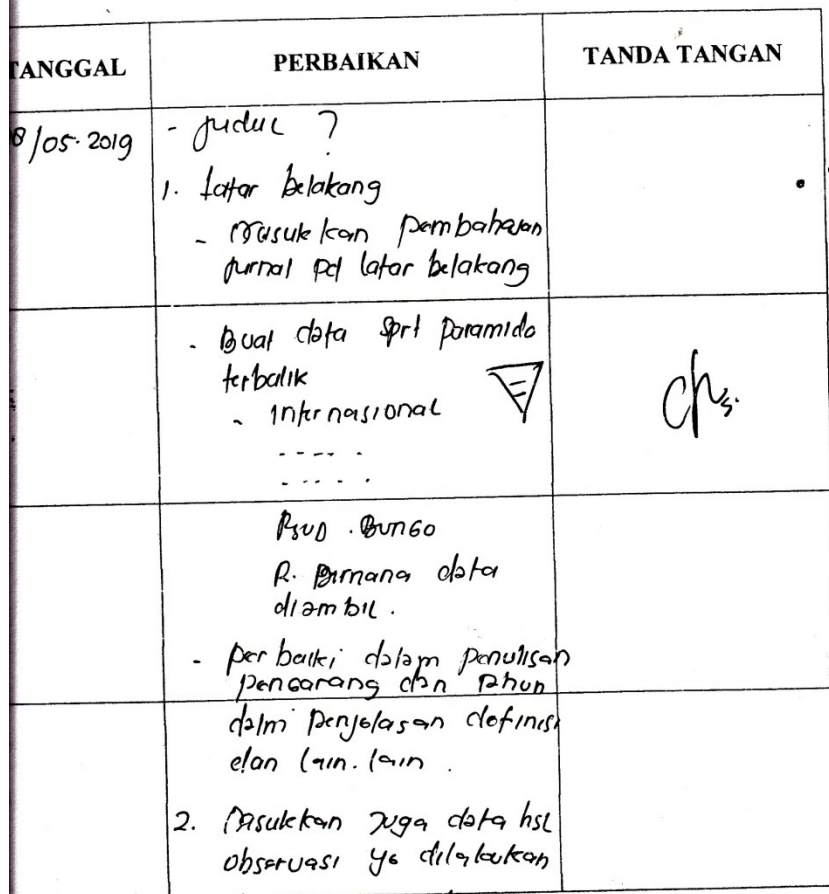 TANGGAL PERBAIKAN TANDA TANGAN
8/05.2019 - Judul ?
1. Latar belakang
- Masukkan pembahasan
jurnal pd latar belakang
- Buat data sprt paramida
terbalik
- Internasional
- - - - -
- - - - -
RSUD. Bungo
R. Dimana data
diambil.
- Perbaiki dalam penulisan
pengarang dan tahun
dalm penjelasan definisi
dan lain-lain.
2. Masukkan juga data hsl
observasi yg dilakukan